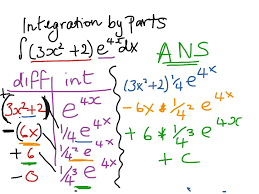 Integration by Parts
∫ (3x²+2) e^4x dx
diff | int
+ (3x²+2) e^4x
− (6x) 1/4 e^4x
+ 6 1/4² e^4x
− 0 1/4³ e^4x
ANS
(3x²+2) 1/4 e^4x
− 6x * 1/4² e^4x
+ 6 * 1/4³ e^4x
+ C